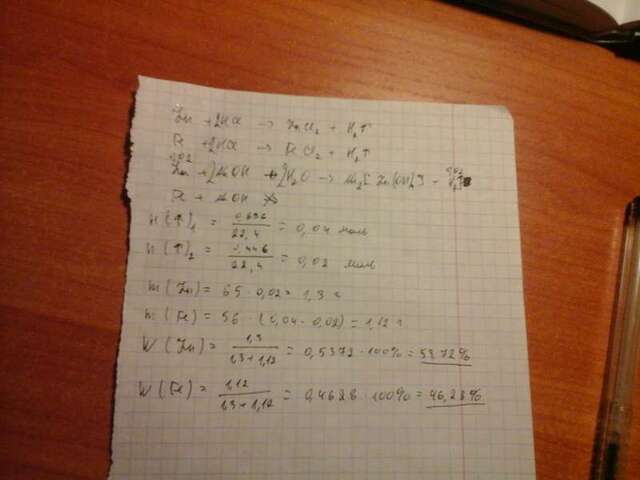 Zn + 2HCl → ZnCl₂ + H₂↑
Fe + 2HCl → FeCl₂ + H₂↑
0,02 0,02
Zn + 2NaOH + 2H₂O → Na₂[Zn(OH)₄] + H₂↑
Fe + NaOH
n(↑)₁ = 0,896 / 22,4 = 0,04 моль
n(↑)₂ = 0,448 / 22,4 = 0,02 моль
m(Zn) = 65 · 0,02 = 1,3 г
m(Fe) = 56 (0,04 - 0,02) = 1,12 г
W(Zn) = 1,3 / 1,3+1,12 = 0,5372 · 100% = 53,72%
W(Fe) = 1,12 / 1,3+1,12 = 0,4628 · 100% = 46,28%